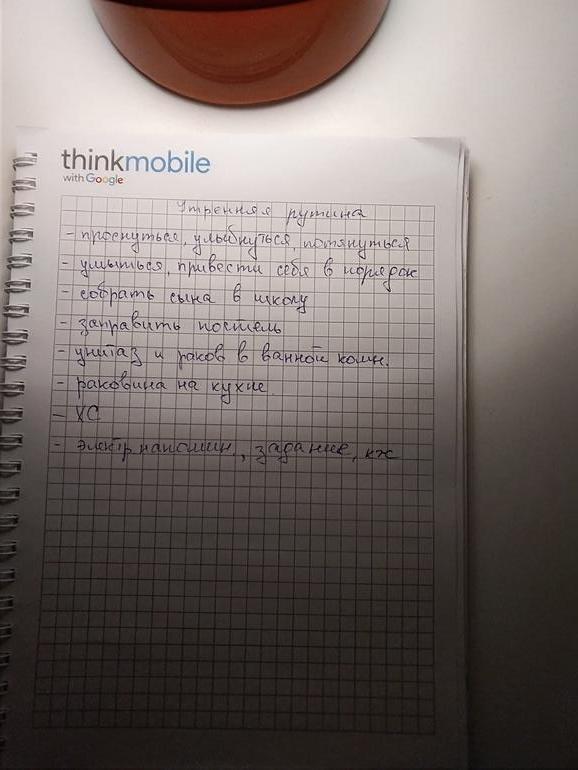 thinkmobile
with Google
Утренняя рутина
- проснуться, улыбнуться, потянуться
- умыться, привести себя в порядок
- собрать сына в школу
- заправить постель
- унитаз и раков в ванной комн.
- раковина на кухне
- ХС
- электр напомин., задание, кж